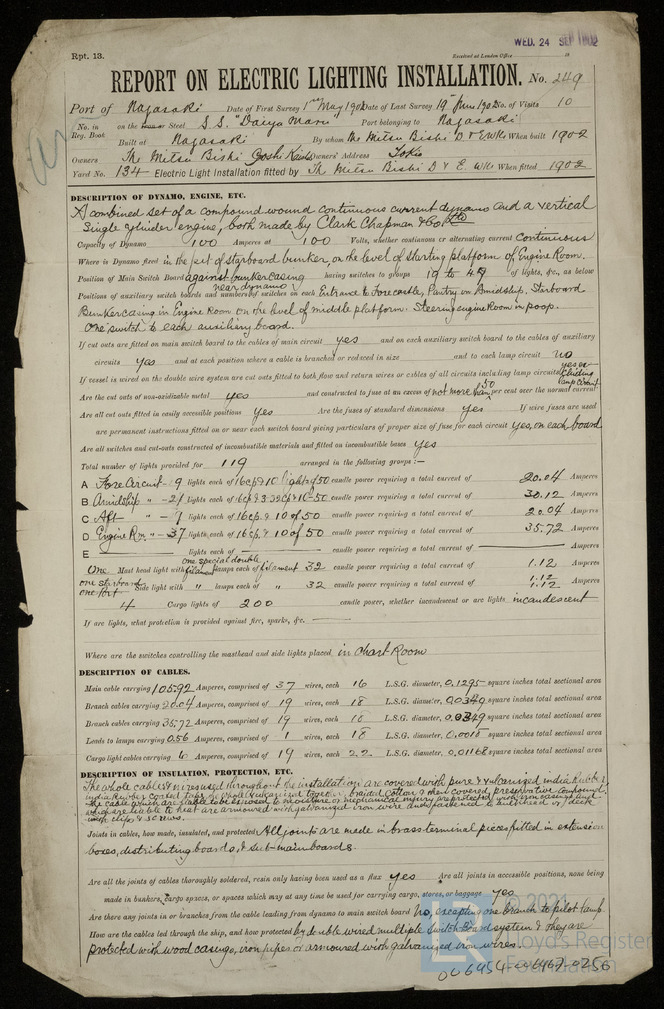 WED. 24 SEP 1902
Rpt. 13.
Received at London Office
REPORT ON ELECTRIC LIGHTING INSTALLATION. No. 249
Port of Nagasaki Date of First Survey 1st May 1902 Date of Last Survey 19th June 1902 No. of Visits 10
No. in Reg. Book on the Steel S.S. "Daiya Maru" Port belonging to Nagasaki
Built at Nagasaki By whom The Mitsu Bishi D. & E. Wks When built 1902
Owners The Mitsu Bishi Goshi Kaisha Owners' Address Tokio
Yard No. 134 Electric Light Installation fitted by The Mitsu Bishi D & E. Wks When fitted 1902
DESCRIPTION OF DYNAMO, ENGINE, ETC.
A combined set of a compound wound continuous current dynamo and a vertical
single cylinder engine, both made by Clark Chapman & Co. Ltd
Capacity of Dynamo 100 Amperes at 100 Volts, whether continuous or alternating current continuous
Where is Dynamo fixed in the fwd of starboard bunker, on the level of starting platform of Engine Room.
Position of Main Switch Board against bunker casing near dynamo having switches to groups of lights, &c., as below
Positions of auxiliary switch boards and numbers of switches on each Entrance to Forecastle, Pantry on Bmidship, Starboard
Bunker casing in Engine Room on the level of middle platform. Steering engine Room in poop.
One switch to each auxiliary board.
If cut outs are fitted on main switch board to the cables of main circuit yes and on each auxiliary switch board to the cables of auxiliary
circuits yes and at each position where a cable is branched or reduced in size and to each lamp circuit no
If vessel is wired on the double wire system are cut outs fitted to both flow and return wires or cables of all circuits including lamp circuits yes excluding lamp circuit
Are the cut outs of non-oxidizable metal yes and constructed to fuse at an excess of not more than 50 per cent over the normal current
Are all cut outs fitted in easily accessible positions yes Are the fuses of standard dimensions yes If wire fuses are used
are permanent instructions fitted on or near each switch board giving particulars of proper size of fuse for each circuit yes, on each board
Are all switches and cut-outs constructed of incombustible materials and fitted on incombustible bases yes
Total number of lights provided for 119 arranged in the following groups :—
A Fore Circuit - 9 lights each of 16 cp & 10 lights of 50 candle power requiring a total current of 20.04 Amperes
B Amidship " - 21 lights each of 16 cp & 3-32 cp & 10-50 candle power requiring a total current of 30.12 Amperes
C Aft " - 9 lights each of 16 cp. & 10 of 50 candle power requiring a total current of 20.04 Amperes
D Engine Rm " - 37 lights each of 16 cp. & 10 of 50 candle power requiring a total current of 35.72 Amperes
E lights each of candle power requiring a total current of Amperes
One Mast head light with one special double filament lamps each of filament 32 candle power requiring a total current of 1.12 Amperes
one starboard one port Side light with " lamps each of " 32 candle power requiring a total current of 1.12 1.12 Amperes
4 Cargo lights of 200 candle power, whether incandescent or arc lights incandescent
If arc lights, what protection is provided against fire, sparks, &c.
Where are the switches controlling the masthead and side lights placed in Chart Room
DESCRIPTION OF CABLES.
Main cable carrying 105.92 Amperes, comprised of 37 wires, each 16 L.S.G. diameter, 0.1295 square inches total sectional area
Branch cables carrying 20.04 Amperes, comprised of 19 wires, each 18 L.S.G. diameter, 0.0349 square inches total sectional area
Branch cables carrying 35.72 Amperes, comprised of 19 wires, each 18 L.S.G. diameter, 0.0349 square inches total sectional area
Leads to lamps carrying 0.56 Amperes, comprised of 1 wires, each 18 L.S.G. diameter, 0.0018 square inches total sectional area
Cargo light cables carrying 6 Amperes, comprised of 19 wires, each 22 L.S.G. diameter, 0.01168 square inches total sectional area
DESCRIPTION OF INSULATION, PROTECTION, ETC.
The whole cables & wires used throughout the installation are covered with pure & vulcanized india rubber,
india rubber coated tape, the whole vulcanized together, braided cotton, & next covered preservative compound.
The cables which are liable to be exposed to moisture or mechanical injury are protected
which are liable to heat are armoured with galvanized iron wire and fastened to bulkhead or deck
with clips & screws.
Joints in cables, how made, insulated, and protected All joints are made in brass terminal pieces fitted in extension
boxes, distributing boards, & sub-main boards.
Are all the joints of cables thoroughly soldered, resin only having been used as a flux yes Are all joints in accessible positions, none being
made in bunkers, cargo spaces, or spaces which may at any time be used for carrying cargo, stores, or baggage yes
Are there any joints in or branches from the cable leading from dynamo to main switch board No, excepting one branch to pilot lamp.
How are the cables led through the ship, and how protected by double wired multiple switch board system & they are
protected with wood casings, iron pipes or armoured with galvanized iron wires.
© 2021
Lloyd's Register
Foundation
006454-006462-0256